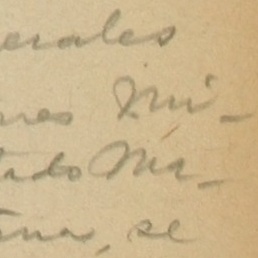 erales
nes Mi-
tado Ma-
ana, se